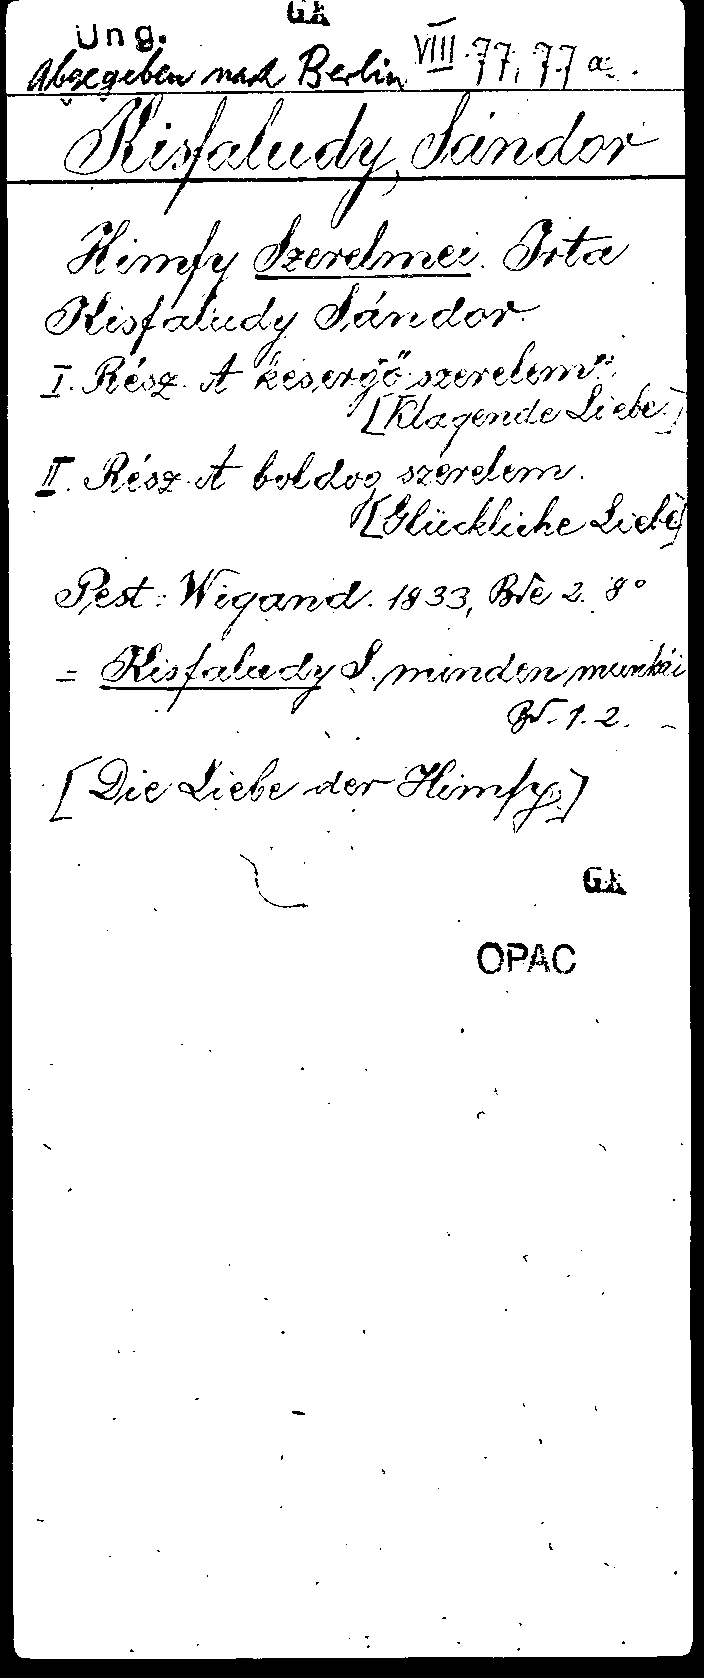 GK
Ung.
Abgegeben nach Berlin VIII. 77, 77 a.
Kisfaludy, Sándor
Himfy Szerelmei. Irta
Kisfaludy Sándor.
I. Rész. A kesergö szerelem.
[Klagende Liebe.]
II. Rész. A boldog szerelem.
[Glückliche Liebe]
Pest: Wigand. 1833, Bde 2. 8°
= Kisfaludy S. minden munkái
Bd. 1. 2. –
[Die Liebe der Himfy.]
GK
OPAC